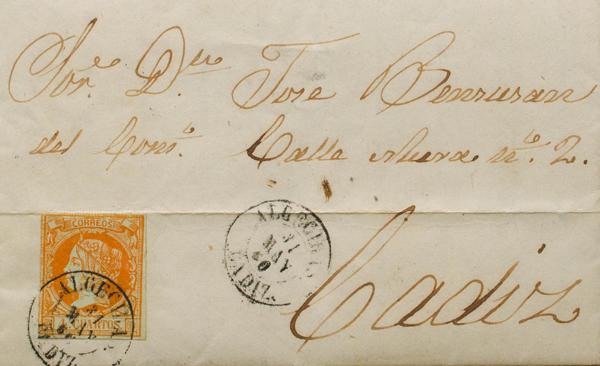 Sor. Dn. Jose Benzusan
del Comº. Calle Nueva nº. 2.
Cadiz
CORREOS
4 CUARTOS
ALGECIRAS
31
MAY
60
CADIZ
ALGECIRAS
31
MAY
60
CADIZ